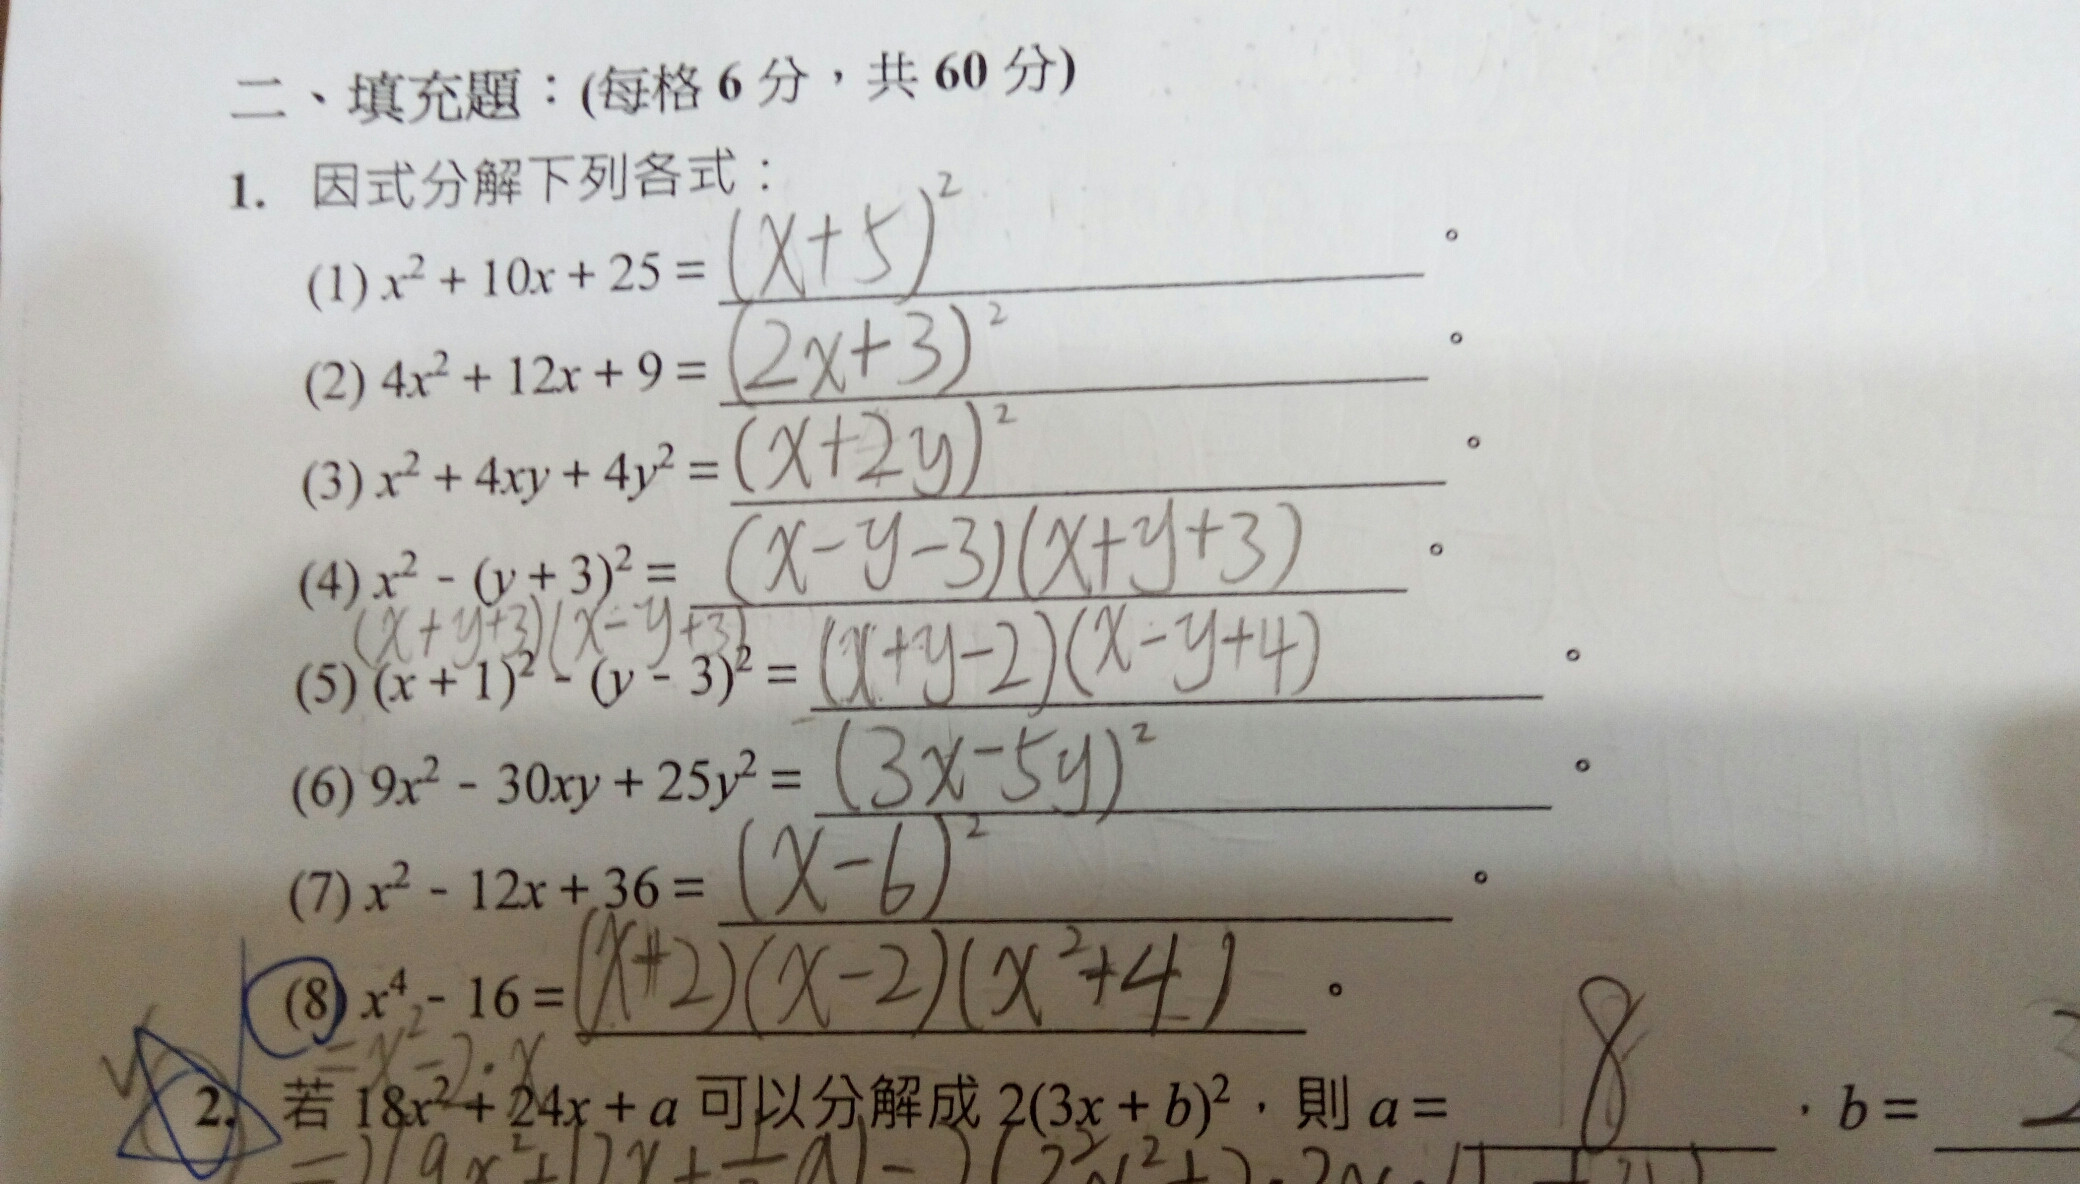 二、填充題：(每格 6 分，共 60 分)
1. 因式分解下列各式：
(1) x² + 10x + 25 = (x+5)² 。
(2) 4x² + 12x + 9 = (2x+3)² 。
(3) x² + 4xy + 4y² = (x+2y)² 。
(4) x² - (y + 3)² = (x-y-3)(x+y+3) 。
(x+y+3)(x-y+3)
(5) (x + 1)² - (y - 3)² = (x+y-2)(x-y+4) 。
(6) 9x² - 30xy + 25y² = (3x-5y)² 。
(7) x² - 12x + 36 = (x-6)² 。
(8) x⁴ - 16 = (x+2)(x-2)(x²+4) 。
= x²-2·x
2. 若 18x² + 24x + a 可以分解成 2(3x + b)²，則 a = 8 ，b =